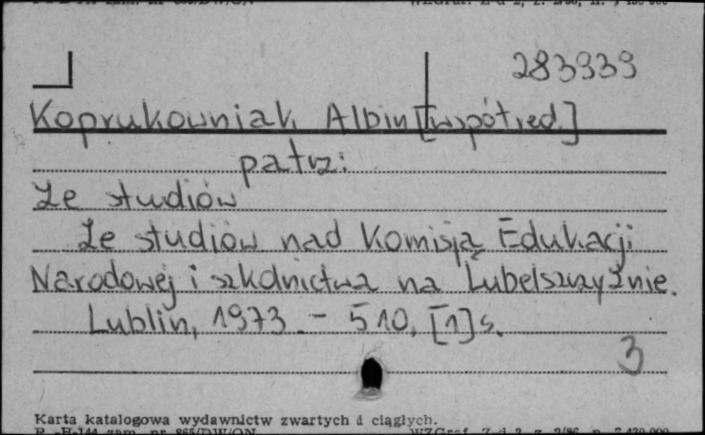 283939
Koprukowniak Albin [współred.]
patrz:
Ze studiów
Ze studiów nad Komisją Edukacji
Narodowej i szkolnictwa na Lubelszczyźnie.
Lublin, 1973. - 510, [1] s.
3
Karta katalogowa wydawnictw zwartych i ciągłych.